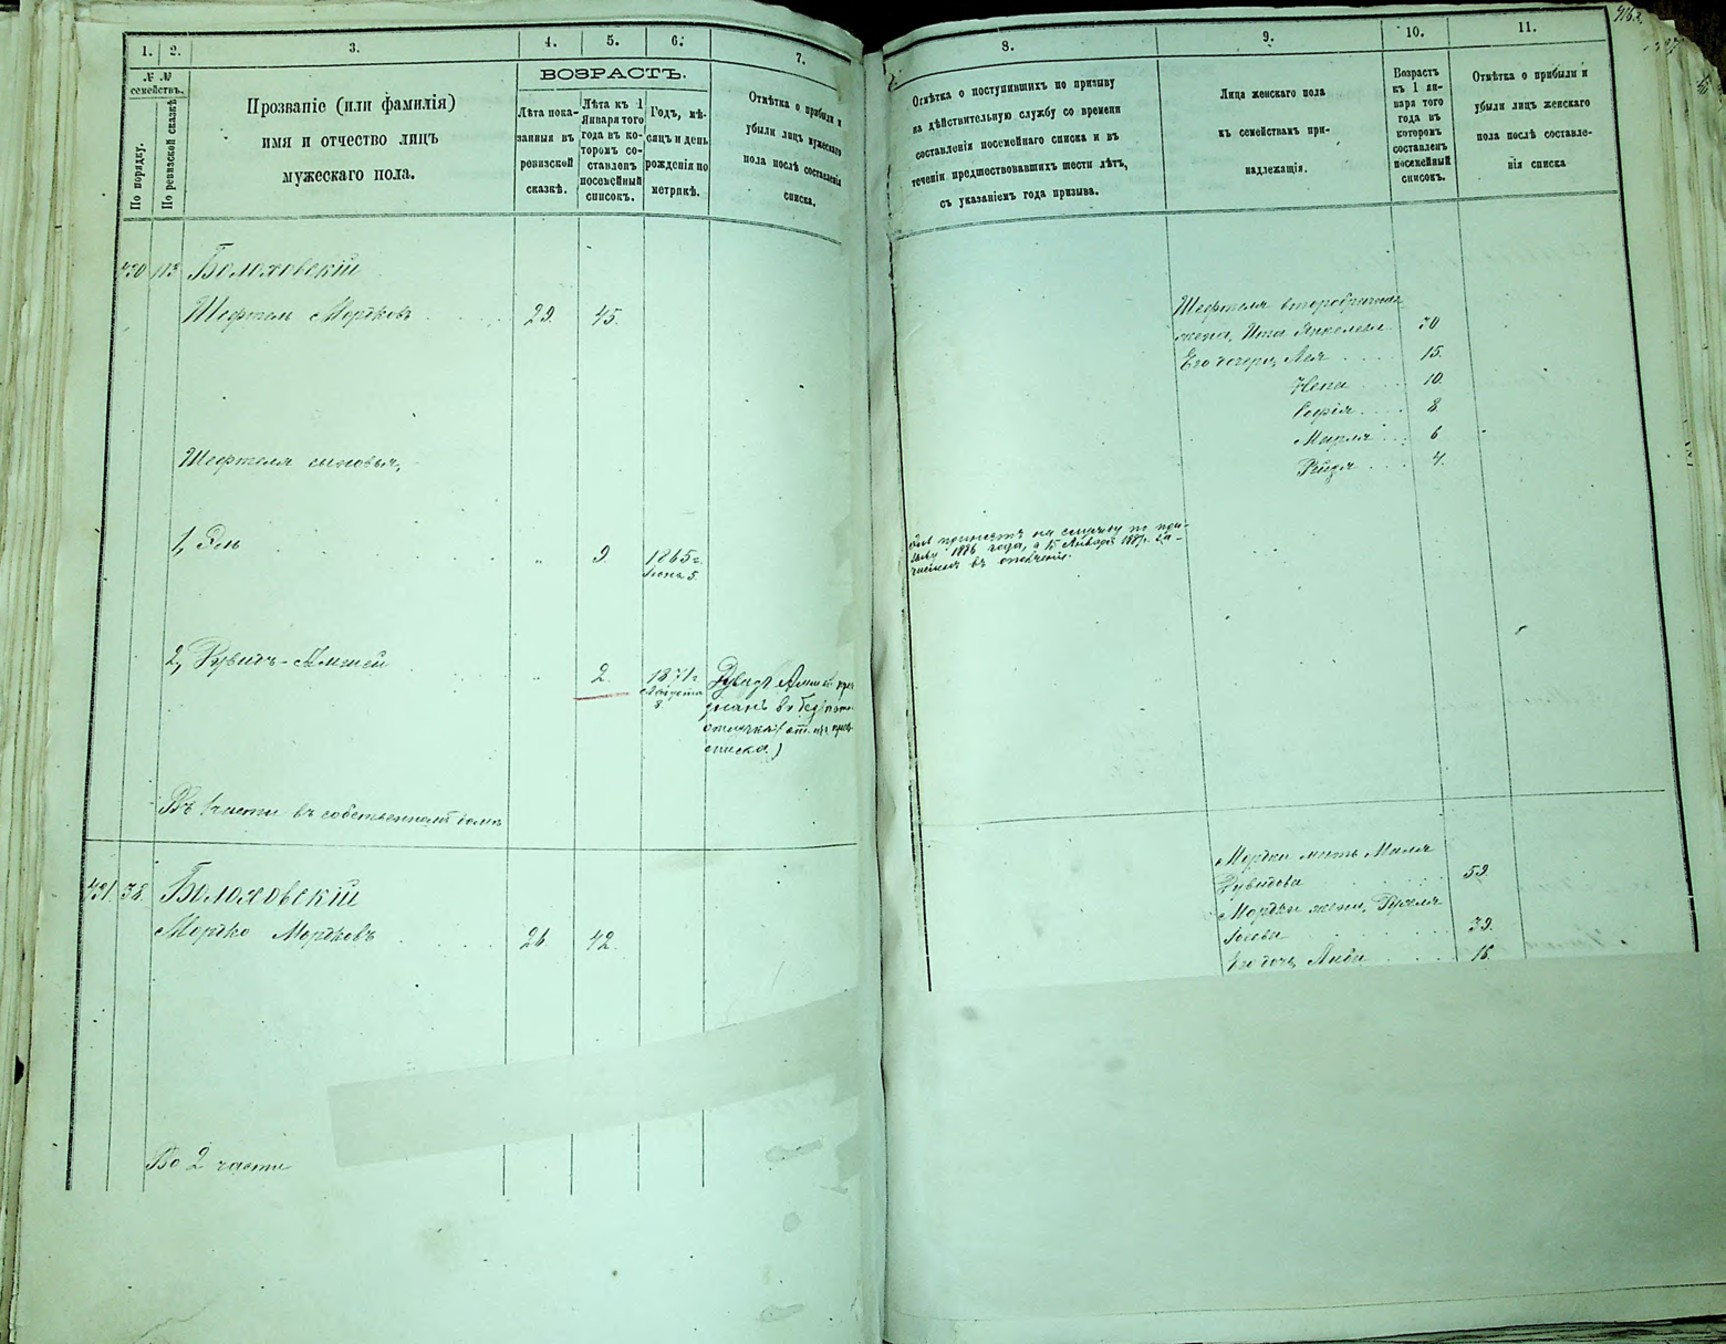 1. 2. 3. 4. 5. 6. 7.
№ №
семействъ.
По порядку.
По ревизской сказкѣ
Прозваніе (или фамилія)
имя и отчество лицъ
мужескаго пола.
ВОЗРАСТЪ.
Лѣта пока-
занныя въ
ревизской
сказкѣ.
Лѣта къ 1
Января того
года въ ко-
торомъ со-
ставленъ
посемейный
списокъ.
Годъ, мѣ-
сяцъ и день
рожденія по
метрикѣ.
Отмѣтка о прибыли и
убыли лицъ мужескаго
пола послѣ составленія
списка.
430 113 Болоховскій
Шефтель Мордковъ 29. 45.
Шефтеля сыновья,
1, Эль " 9. 1865 г.
5.
2, Рувинъ-Амшей " 2. 1871 г.
Августа
8
Рувидъ Амшей
въ
списка.)
Въ 1 части въ собственномъ домѣ
431. 38. Болоховскій
Мордко Мордковъ 26. 42.
Во 2 части
8. 9. 10. 11.
Отмѣтка о поступившихъ по призыву
на дѣйствительную службу со времени
составленія посемейнаго списка и въ
теченіи предшествовавшихъ шести лѣтъ,
съ указаніемъ года призыва.
Лица женскаго пола
къ семействамъ при-
надлежащія.
Возрастъ
къ 1 ян-
варя того
года въ
которомъ
составленъ
посемейный
списокъ.
Отмѣтка о прибыли и
убыли лицъ женскаго
пола послѣ составле-
нія списка
Шефтеля второбрачная
жена, Ита Янкелева 30
Его дочери, Лея 15.
Нена 10.
Софія 8.
Мирля 6
4.
принятъ на службу по при-
зыву 1886 года, а 15 Января 1887 г. за-
численъ въ ополченіе.
Мордки мать Миля
Рувидова 59
Мордки жена,
39.
Его дочь, 15.